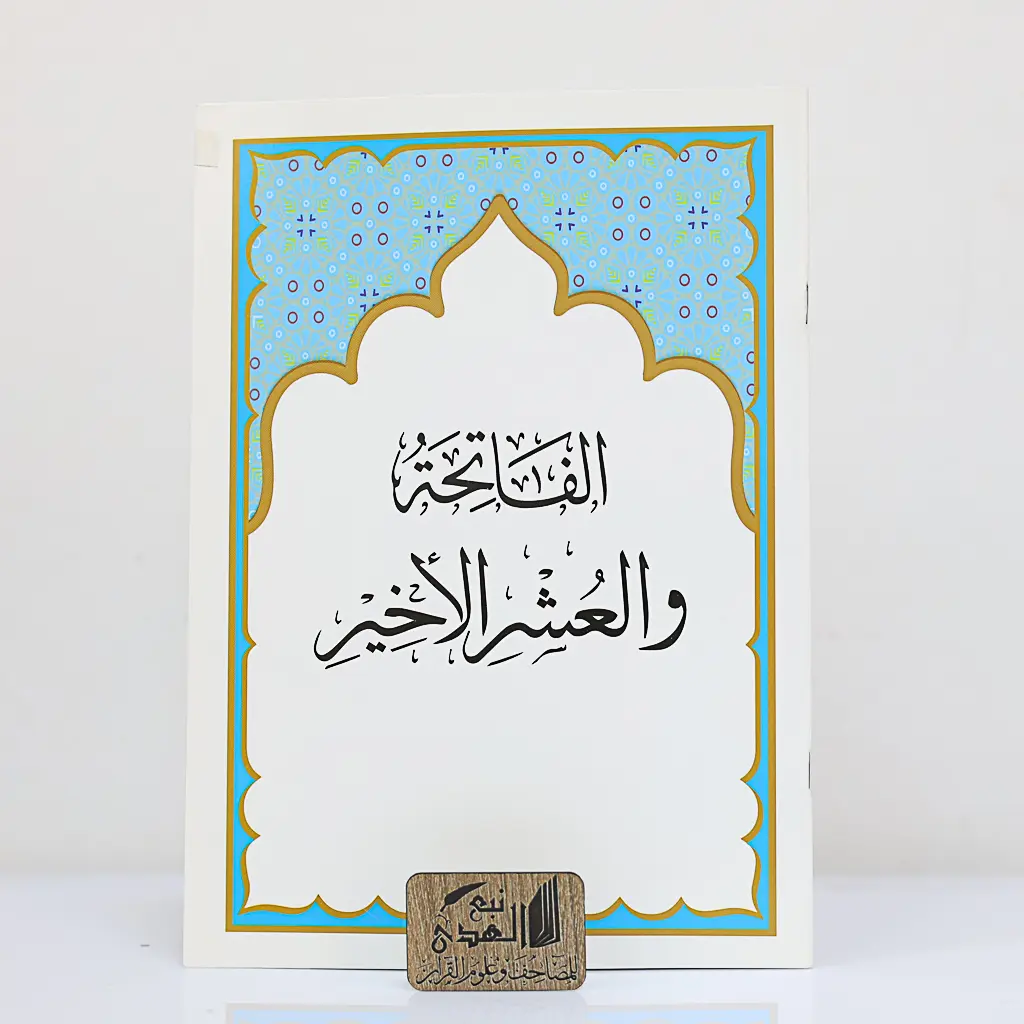 الفَاتِحَةُ
والعُشْرِ الأَخِيْرِ
نبع
الهدى
للمصاحف وعلوم القرآن